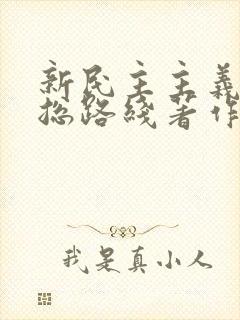 新民主主義
总路綫著作
我是真小人